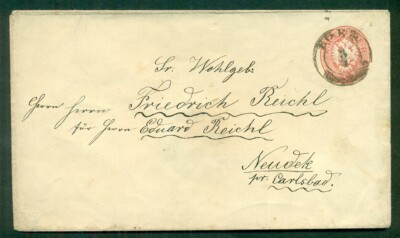 EGER
Sr. Wohlgeb.
Herrn Herrn Friedrich Reichl
für Herrn Eduard Reichl
Neudek
pr. Carlsbad.